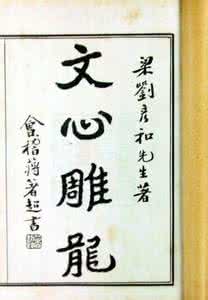 梁劉彦和先生著
文心雕龍
會稽蔣箸超書